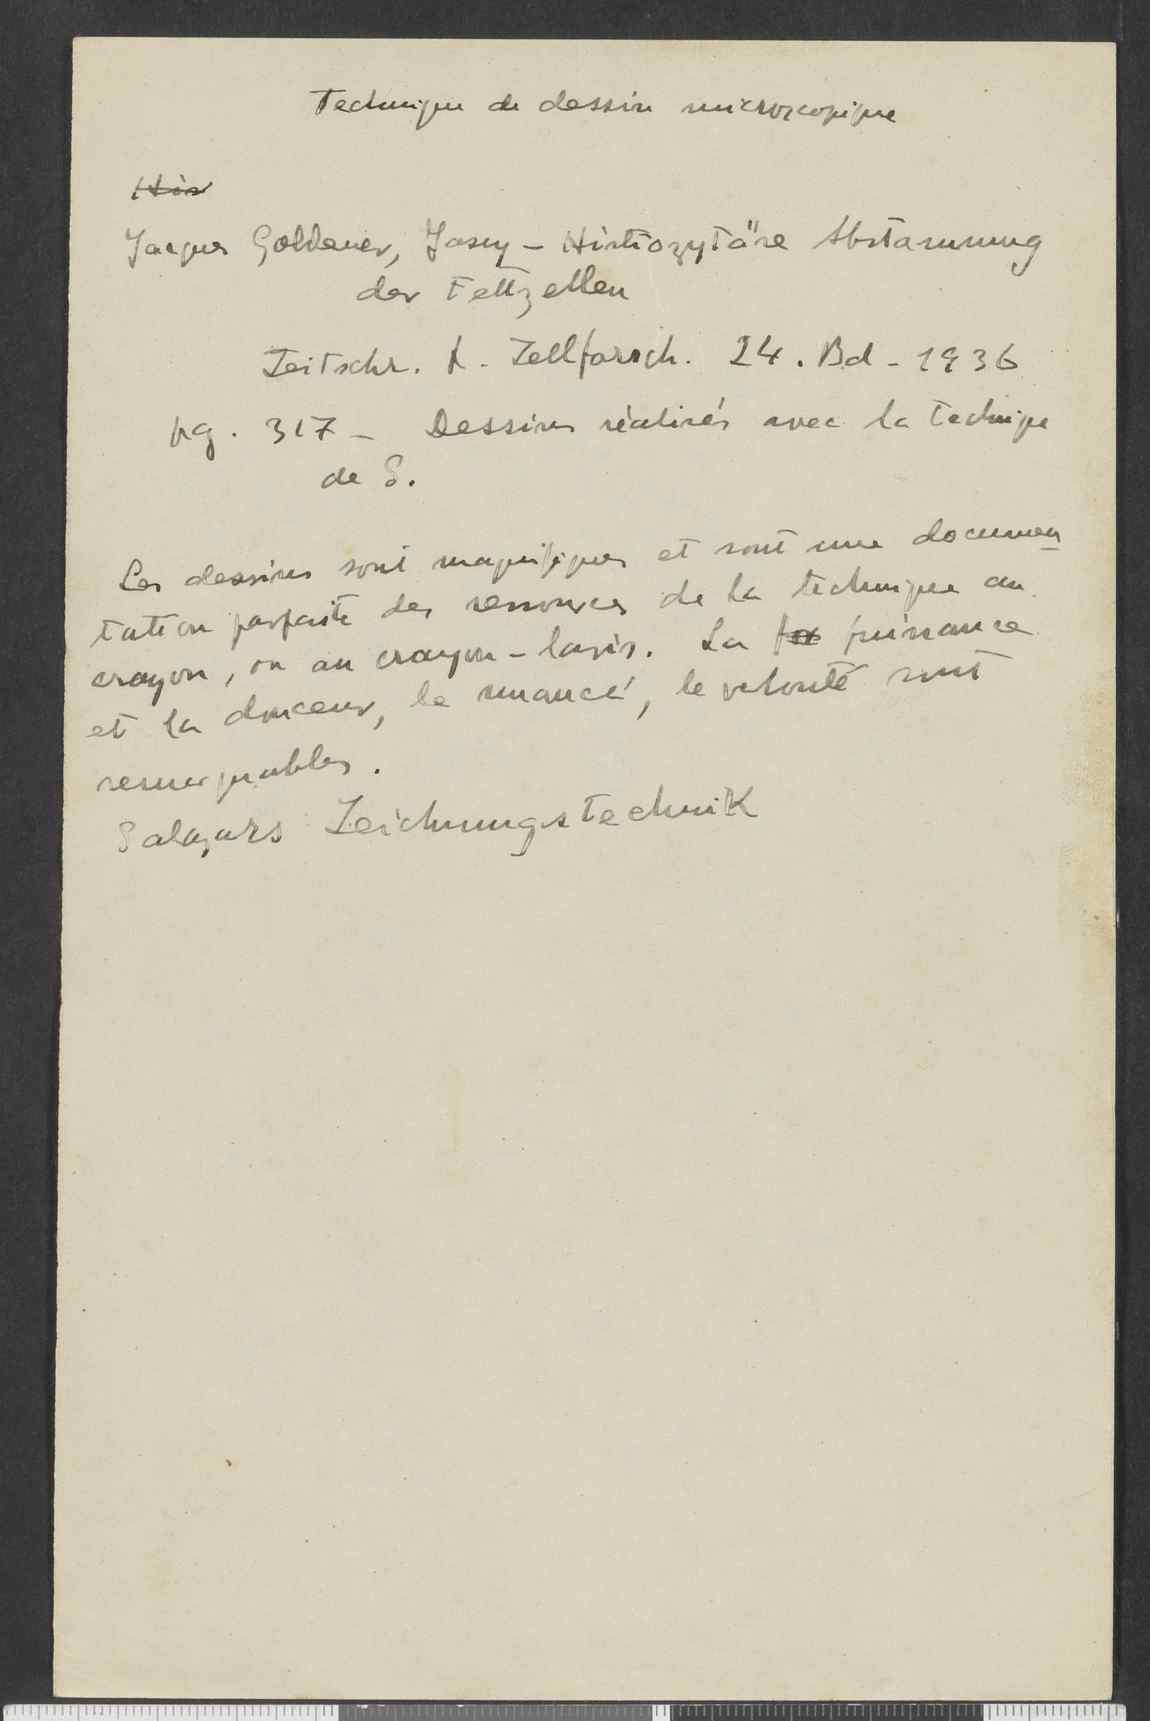 Technique de dessin microscopique
His
Jacques Goldaner, Jassy - Histiozytäre Abstammung
der Fettzellen
Zeitschr. f. Zellforsch. 24. Bd - 1936
pg. 317 - Dessins réalisés avec la technique
de S.
Les dessins sont magnifiques et sont une documen
tation parfaite des ressources de la technique au
crayon, ou au crayon-lavis. La puissance
et la douceur, le nuancé, le velouté sont
remarquables.
Salazars Zeichnungstechnik